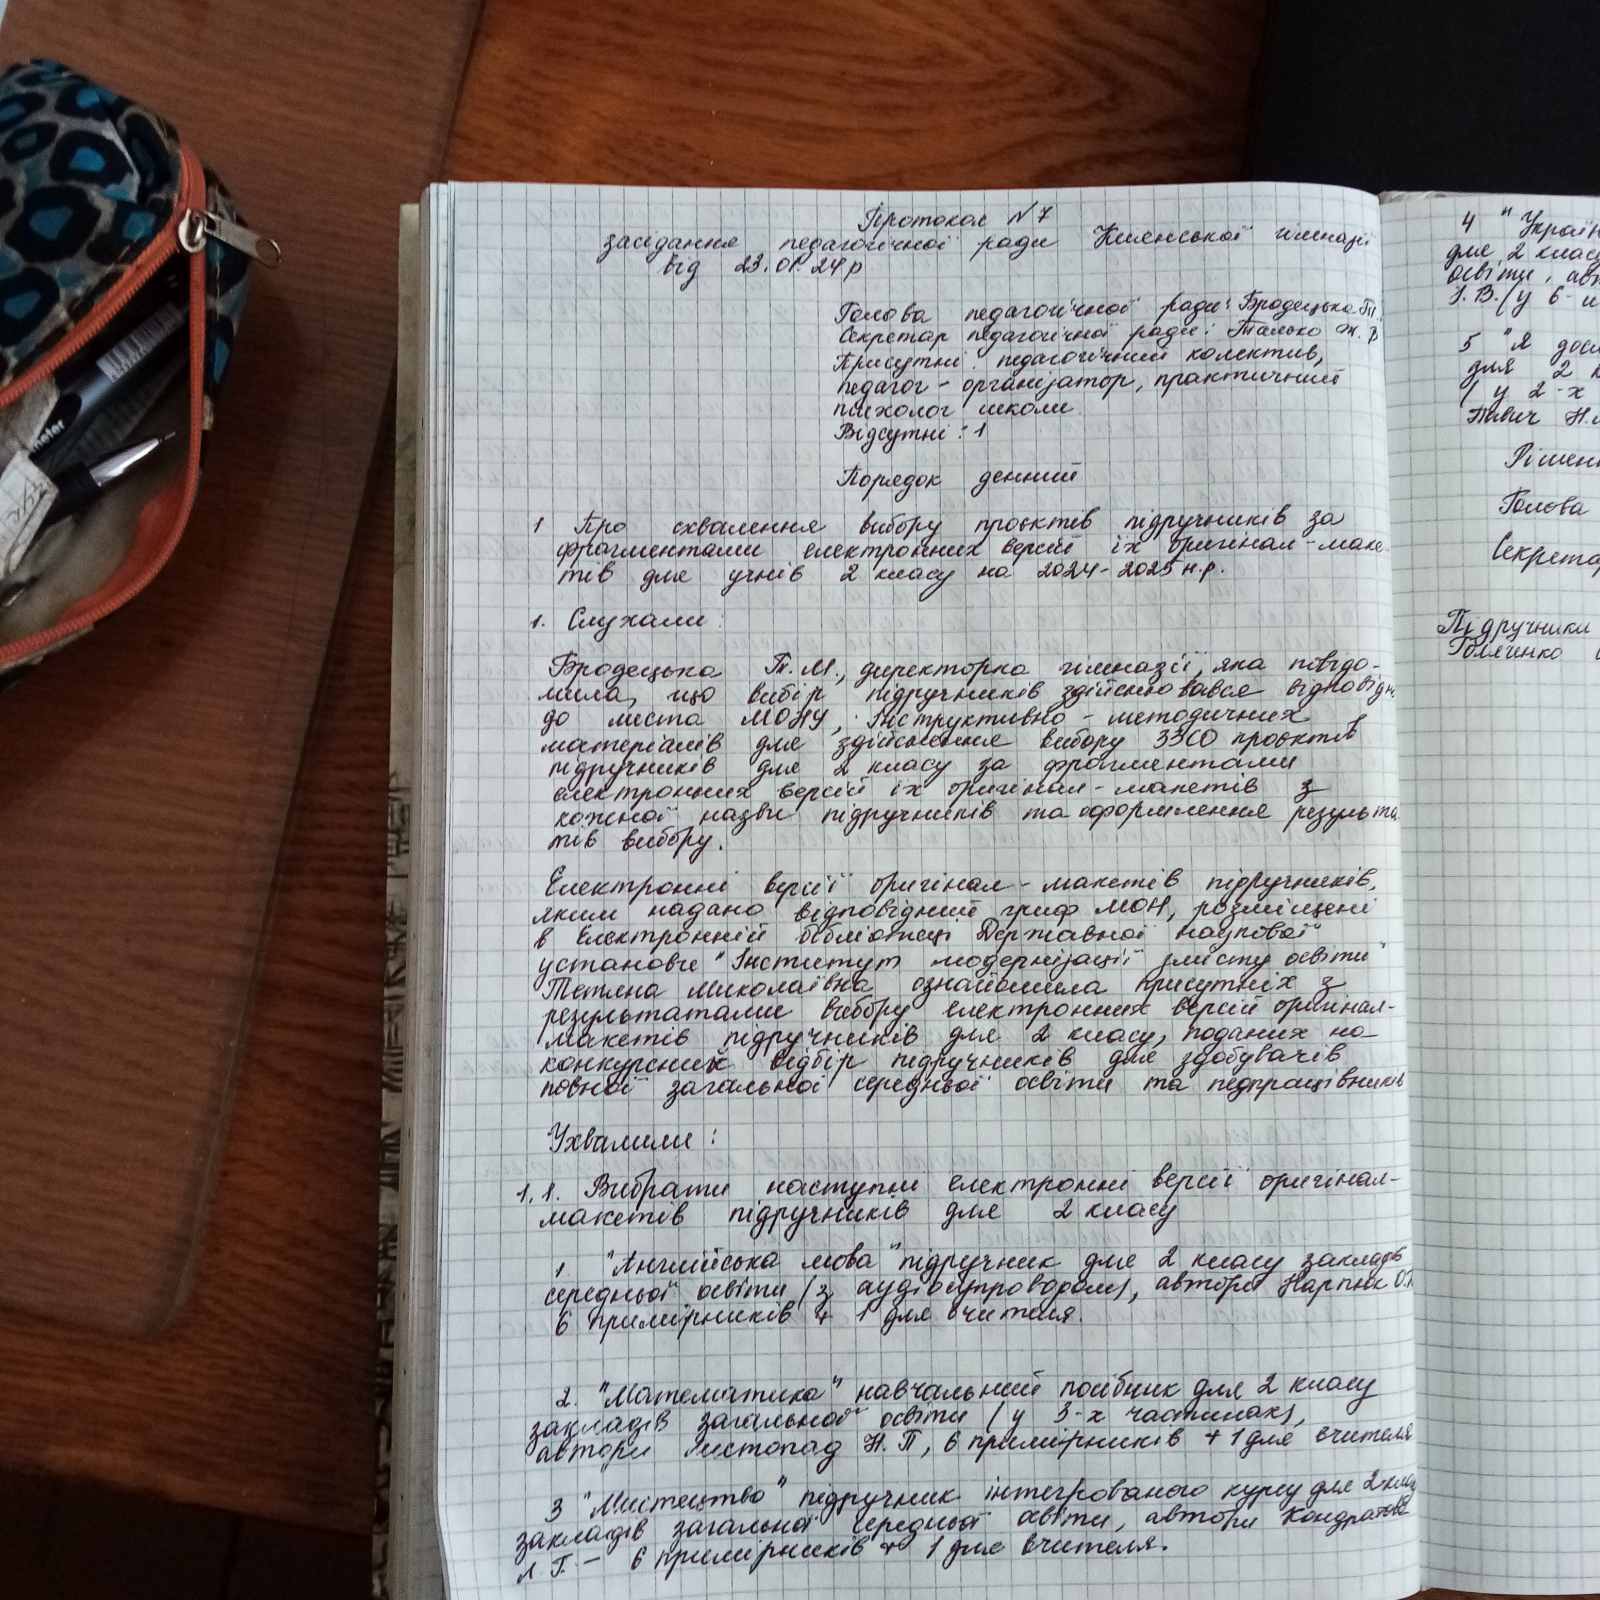 Протокол №7
засідання педагогічної ради гімназії
від 23.01.24р
Голова педагогічної ради: Бродецька Т.М.
Секретар педагогічної ради: Талько Ж. В
Присутні: педагогічний колектив,
педагог - організатор, практичний
психолог школи
Відсутні: 1
Порядок денний
1 Про схвалення вибору проєктів підручників за
фрагментами електронних версій їх оригінал-маке-
тів для учнів 2 класу на 2024-2025 н.р.
1. Слухали:
Бродецька Т.М., директорка гімназії, яка повідо-
мила, що вибір підручників здійснювався відповідно
до листа МОНУ, Інструктивно - методичних
матеріалів для здійснення вибору ЗЗСО проєктів
підручників для 2 класу за фрагментами
електронних версій їх оригінал-макетів з
кожної назви підручників та оформлення результа
тів вибору.
Електронні версії оригінал-макетів підручників,
яким надано відповідний гриф МОН, розміщені
в Електронній бібліотеці Державної наукової
установи "Інститут модернізації змісту освіти"
Тетяна Миколаївна ознайомила присутніх з
результатами вибору електронних версій оригінал-
макетів підручників для 2 класу, поданих на
конкурсний відбір підручників для здобувачів
повної загальної середньої освіти та педпрацівників
Ухвалили:
1.1. Вибрати наступні електронні версії оригінал-
макетів підручників для 2 класу
1 "Англійська мова" підручник для 2 класу закладів
середньої освіти (з аудіосупроводом), автори Карпюк О.
6 примірників + 1 для вчителя.
2. "Математика" навчальний посібник для 2 класу
закладів загальної освіти (у 3-х частинах),
автори Листопад Н.П, 6 примірників + 1 для вчителя
3 "Мистецтво" підручник інтегрованого курсу для 2 класу
закладів загальної середньої освіти, автори Кондратова
Л Г. - 6 примірників + 1 для вчителя.
4 "Україн
для 2 класу
освіти, авт
І.В. (у 6-и
5 "Я досл
для 2 к
(у 2-х
Н.
Рішен
Голова
Секретар
Підручники
meter